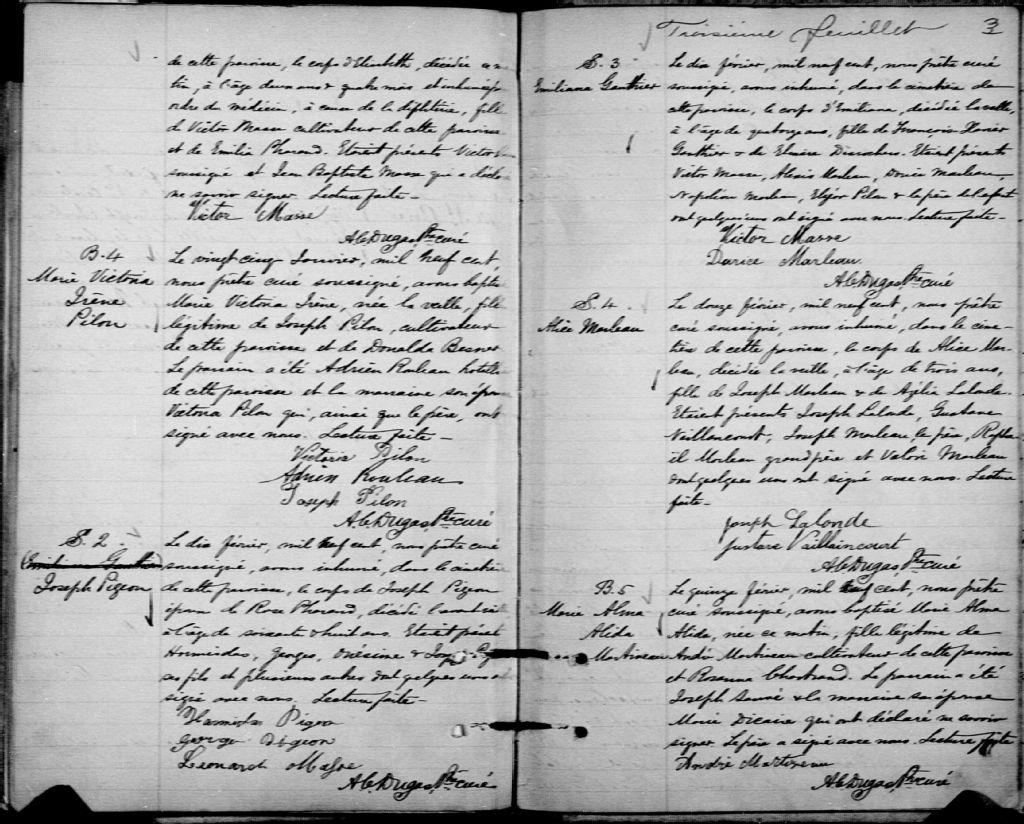 de cette paroisse, le corps d'Elisabeth, décédée
à l'âge de deux ans et quatre mois et inhumée par
ordre du médecin, à cause de la diphtérie, fille
de Victor Masse cultivateur de cette paroisse
et de Emilia Pharand. Etaient présents Victor
soussigné et Jean Baptiste Masse qui a déclaré
ne savoir signer. Lecture faite -
Victor Masse
A.C. Dugas Ptre curé
B. 4
Marie Victoria
Irène
Pilon
Le vingt cinq Janvier, mil neuf cent,
nous prêtre curé soussigné, avons baptisé
Marie Victoria Irène, née la veille, fille
légitime de Joseph Pilon, cultivateur
de cette paroisse et de Donalda Besner
Le parrain a été Adrien Rouleau
de cette paroisse et la marraine son épouse
Victoria Pilon qui, ainsi que le père, ont
signé avec nous. Lecture faite -
Victoria Pilon
Adrien Rouleau
Joseph Pilon
A.C. Dugas Ptre curé
S. 2
Joseph Pigeon
Le dix février, mil neuf cent, nous prêtre curé
soussigné, avons inhumé, dans le cimetière
de cette paroisse, le corps de Joseph Pigeon
époux de Rose Pharand, décédé l'avant veille
à l'âge de soixante & huit ans. Etaient présents
Hormidas, Georges, Onésime &
ses fils et plusieurs autres dont quelques uns ont
signé avec nous. Lecture faite -
Hormidas Pigeon
George Pigeon
Leonard Masse
A.C. Dugas Ptre curé
Troisième feuillet 3
S. 3
Emiliana Gauthier
Le dix février, mil neuf cent, nous prêtre curé
soussigné, avons inhumé, dans le cimetière de
cette paroisse, le corps d'Emiliana, décédée la veille,
à l'âge de quatorze ans, fille de François Xavier
Gauthier & de Elmire. Etaient présents
Victor Masse, Alexis Marleau, Marleau,
Napoléon Marleau, Elzéar Pilon & le père de la défunte
dont quelques uns ont signé avec nous. Lecture faite -
Victor Masse
Darice Marleau
A.C. Dugas Ptre curé
S. 4
Alice Marleau
Le douze février, mil neuf cent, nous prêtre
curé soussigné, avons inhumé, dans le cime-
tière de cette paroisse, le corps de Alice Mar-
leau, décédée la veille, à l'âge de trois ans,
fille de Joseph Marleau & de Azélia Lalonde.
Etaient présents Joseph Lalonde, Gustave
Vaillancourt, Joseph Marleau le père, Rapha-
ël Marleau grand père et Valérie Marleau
dont quelques uns ont signé avec nous. Lecture
faite -
Joseph Lalonde
Gustave Vaillaincourt
A.C. Dugas Ptre curé
B. 5
Marie Alma
Alida
Martineau
Le quinze février, mil neuf cent, nous prêtre
curé soussigné, avons baptisé Marie Alma
Alida, née ce matin, fille légitime de
André Martineau cultivateur de cette paroisse
et Rosanna Chartrand. Le parrain a été
Joseph Sauvé & la marraine son épouse
Marie Dicaire qui ont déclaré ne savoir
signer. Le père a signé avec nous. Lecture faite
André Martineau
A.C. Dugas Ptre curé